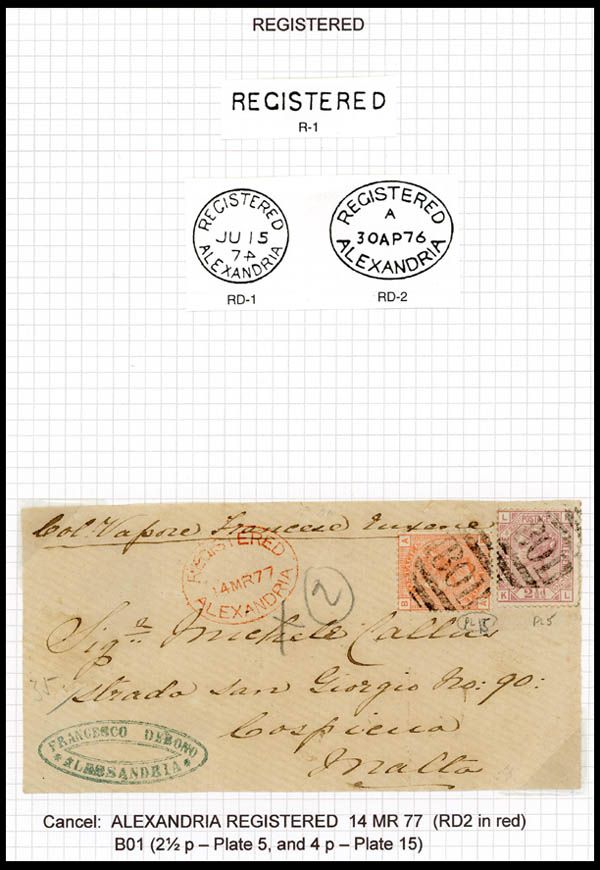 REGISTERED
REGISTERED
R-1
REGISTERED
JU 15
74
ALEXANDRIA
RD-1
REGISTERED
A
30AP76
ALEXANDRIA
RD-2
Col Vapore Francese
REGISTERED
14MR77
ALEXANDRIA
2
B01
B01
POSTAGE
L
K
L
2½
A
B
PL 15
PL5
Sig.ª Michele
Strada San Giorgio No: 90:
Cospicua
Malta
FRANCESCO DEBONO
ALESSANDRIA
Cancel: ALEXANDRIA REGISTERED 14 MR 77 (RD2 in red)
B01 (2½ p – Plate 5, and 4 p – Plate 15)